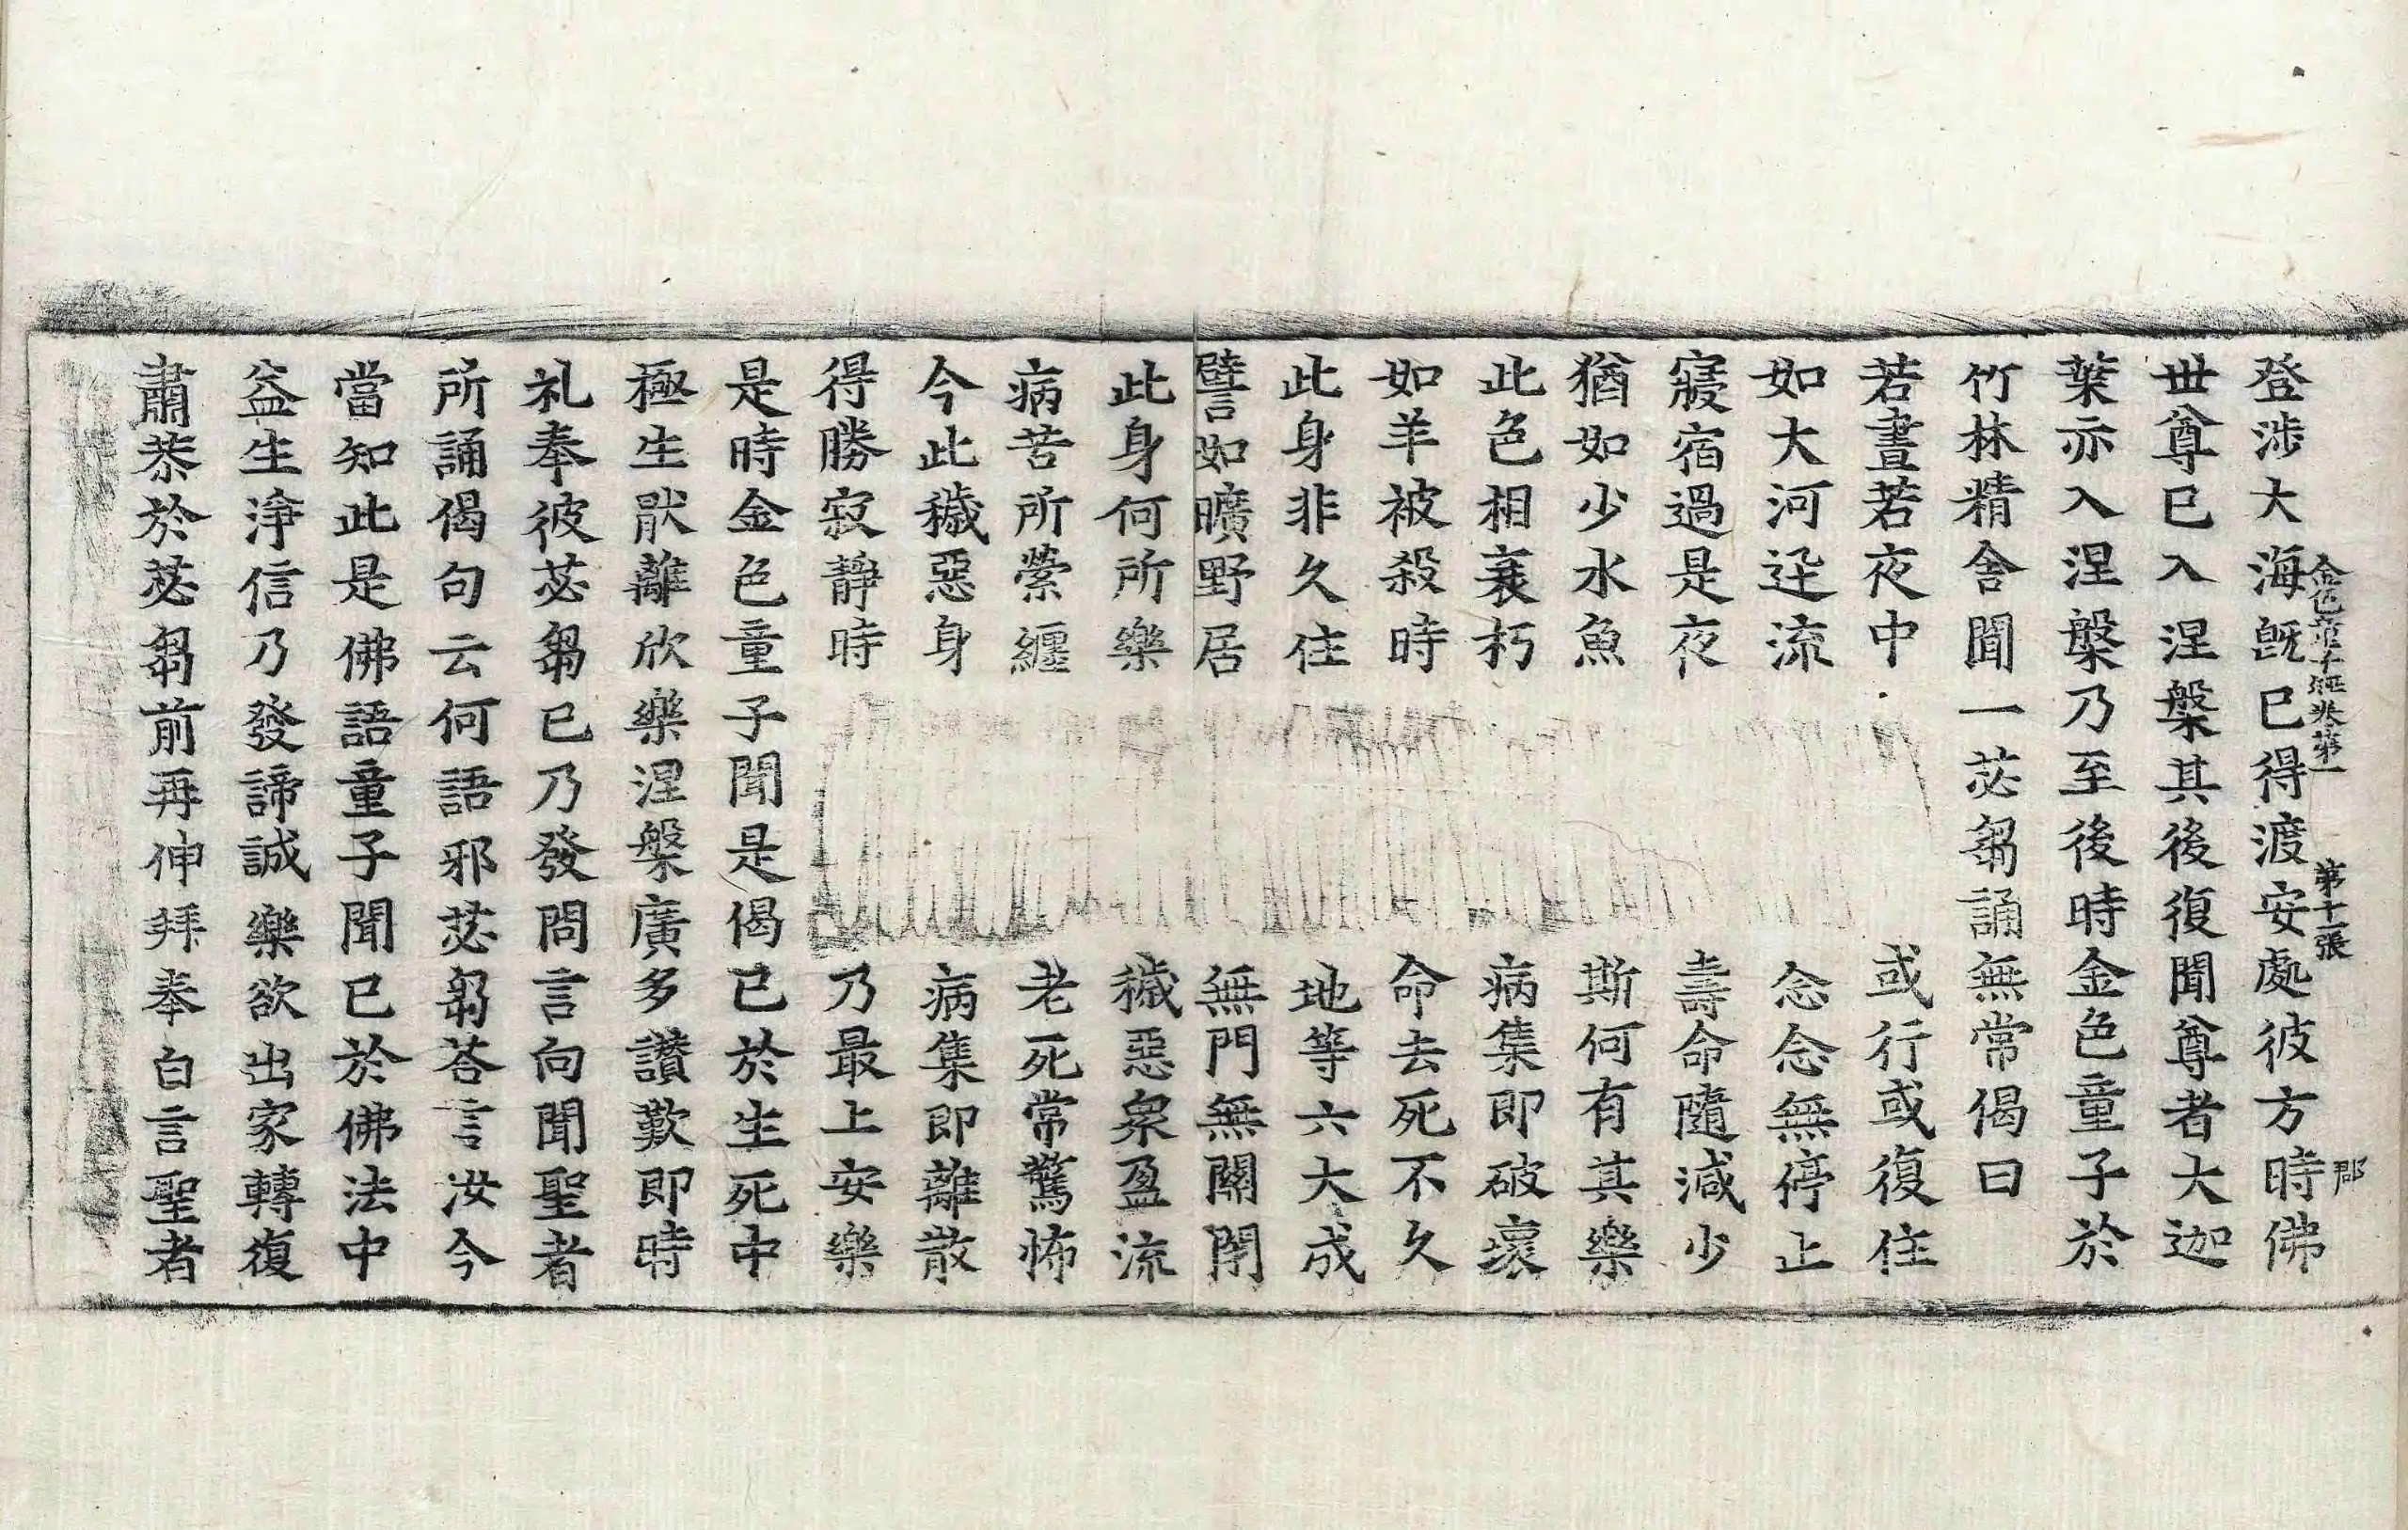 金色童子經卷第一 第十一張 郡
登涉大海旣已得渡安處彼方時佛
世尊已入涅槃其後復聞尊者大迦
葉亦入涅槃乃至後時金色童子於
竹林精舍聞一苾芻誦無常偈曰
若晝若夜中 或行或復住
如大河迅流 念念無停止
寢宿過是夜 壽命隨減少
猶如少水魚 斯何有其樂
此色相衰朽 病集即破壞
如羊被殺時 命去死不久
此身非久住 地等六大成
譬如曠野居 無門無關閉
此身何所樂 穢惡衆盈流
病苦所縈纏 老死常驚怖
今此穢惡身 病集即離散
得勝寂靜時 乃最上安樂
是時金色童子聞是偈已於生死中
極生猒離欣樂涅槃廣多讚歎即時
礼奉彼苾芻已乃發問言向聞聖者
所誦偈句云何語邪苾芻荅言汝今
當知此是佛語童子聞已於佛法中
益生淨信乃發諦誠樂欲出家轉復
肅恭於苾芻前再伸拜奉白言聖者